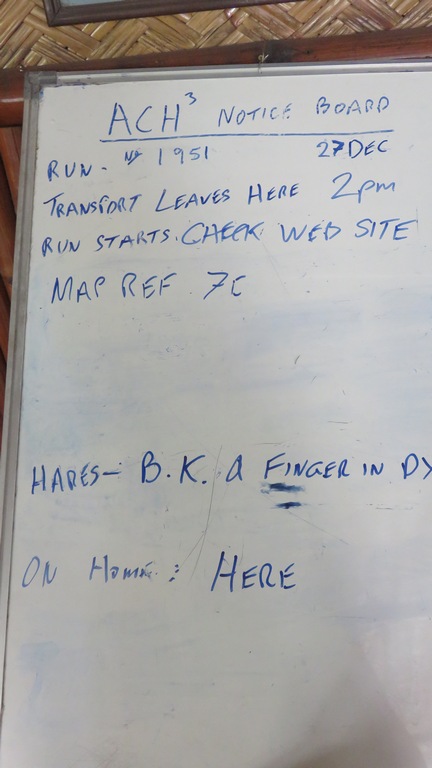 ACH³ NOTICE BOARD
RUN - Nº 1951 27 DEC
TRANSPORT LEAVES HERE 2pm
RUN STARTS. CHECK WEB SITE
MAP REF 7C
HARES - B.K. & FINGER IN DY
ON Home: HERE